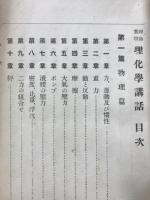 理化學講話 目次
第一篇 物理篇
第一章 力、運動及び慣性
第二章 重力
第三章 動と反動
第四章 摩擦
第五章 大氣の壓力
第六章 ポンプ
第七章 液體の壓力
第八章 密度、比重、浮沈
第九章 二力の組合せ
第十章